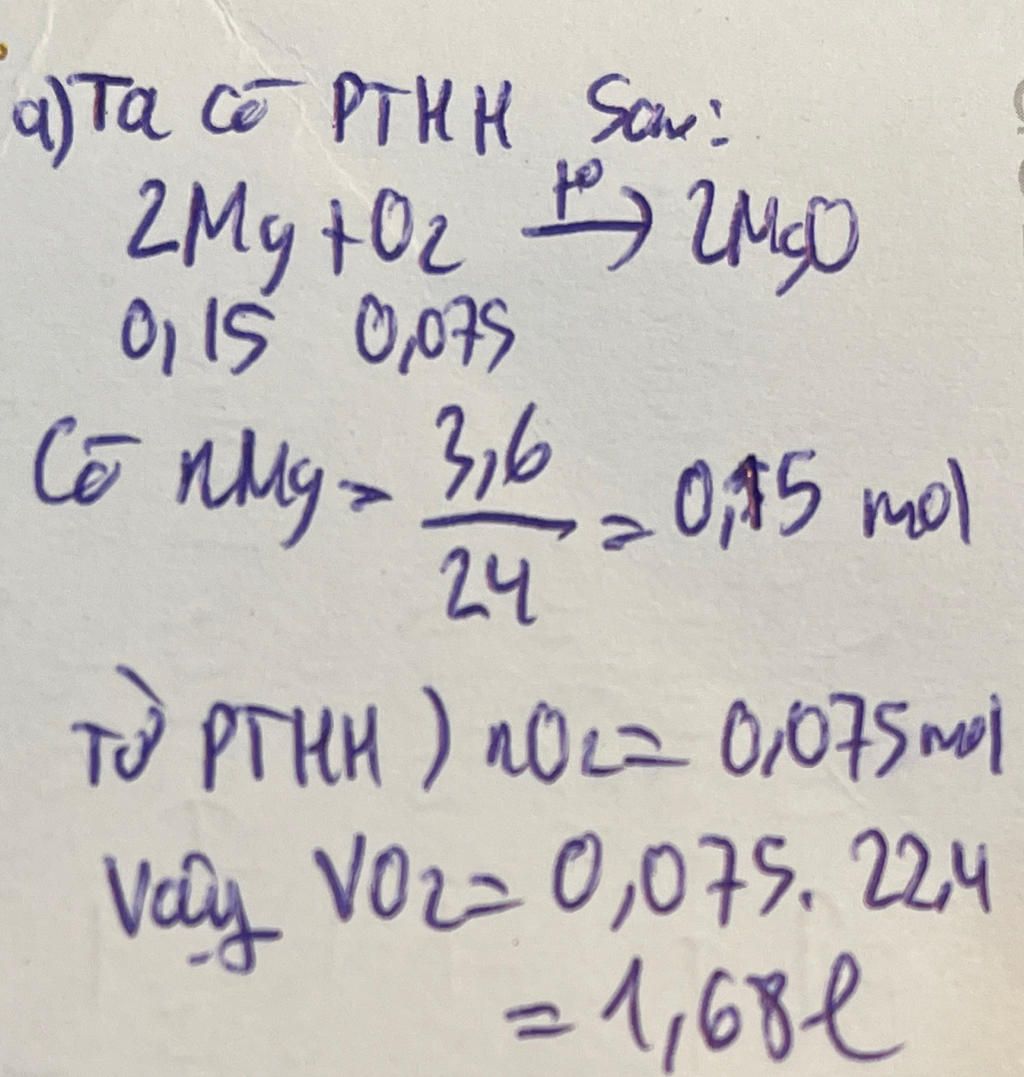 a) Ta có PTHH sau:
2Mg + O2 t° → 2MgO
0,15 0,075
Có nMg = 3,6 / 24 = 0,15 mol
Từ PTHH ) nO2 = 0,075 mol
Vậy VO2 = 0,075 . 22,4
= 1,68 l